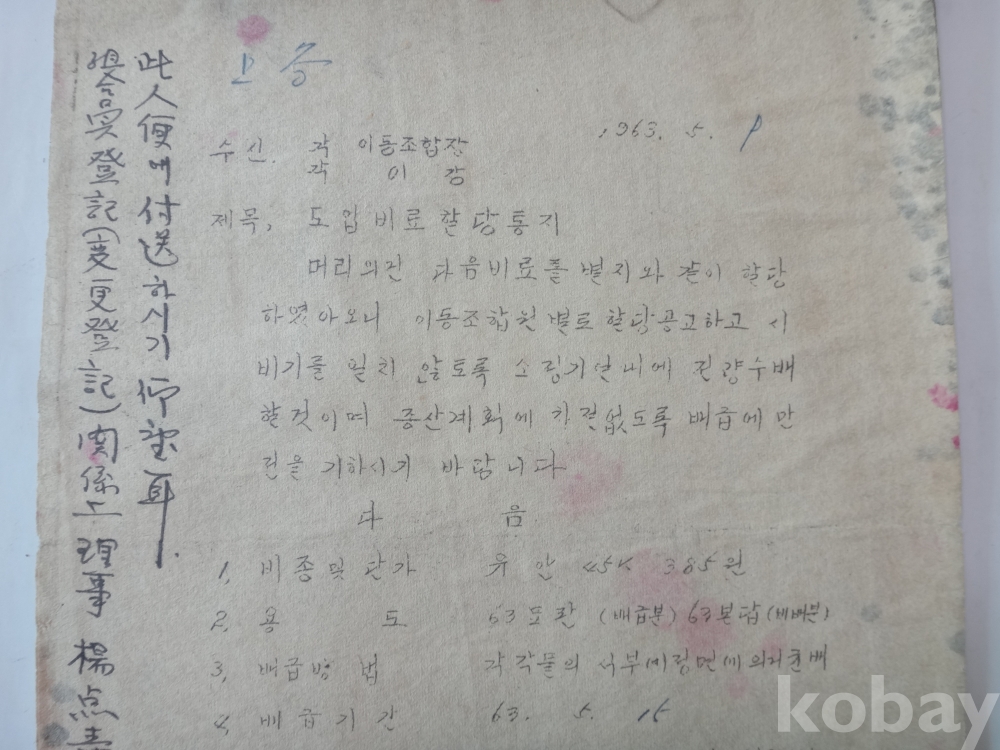 此人便에 付送하시기 仰望耳
登記(变更登記)関係上 理事 楊点
고증
1963. 5. 9
수신. 각 이동조합장
각 이 장
제목, 도입비료할당통지
머리의건 다음비료를 별지와 같이 할당
하였아오니 이동조합원별로 할당공고하고 시
비기를 일치 않토록 소정기일내에 전량수배
할것이며 증산계획에 차질없도록 배급에만
전을 기하시기 바랍니다
다 음
1, 비종및단가 유안 45K 385원
2, 용 도 63 (배급분) 63본답
3, 배급방법 각각물의
4, 배급기간 63. 5. 15
kobay